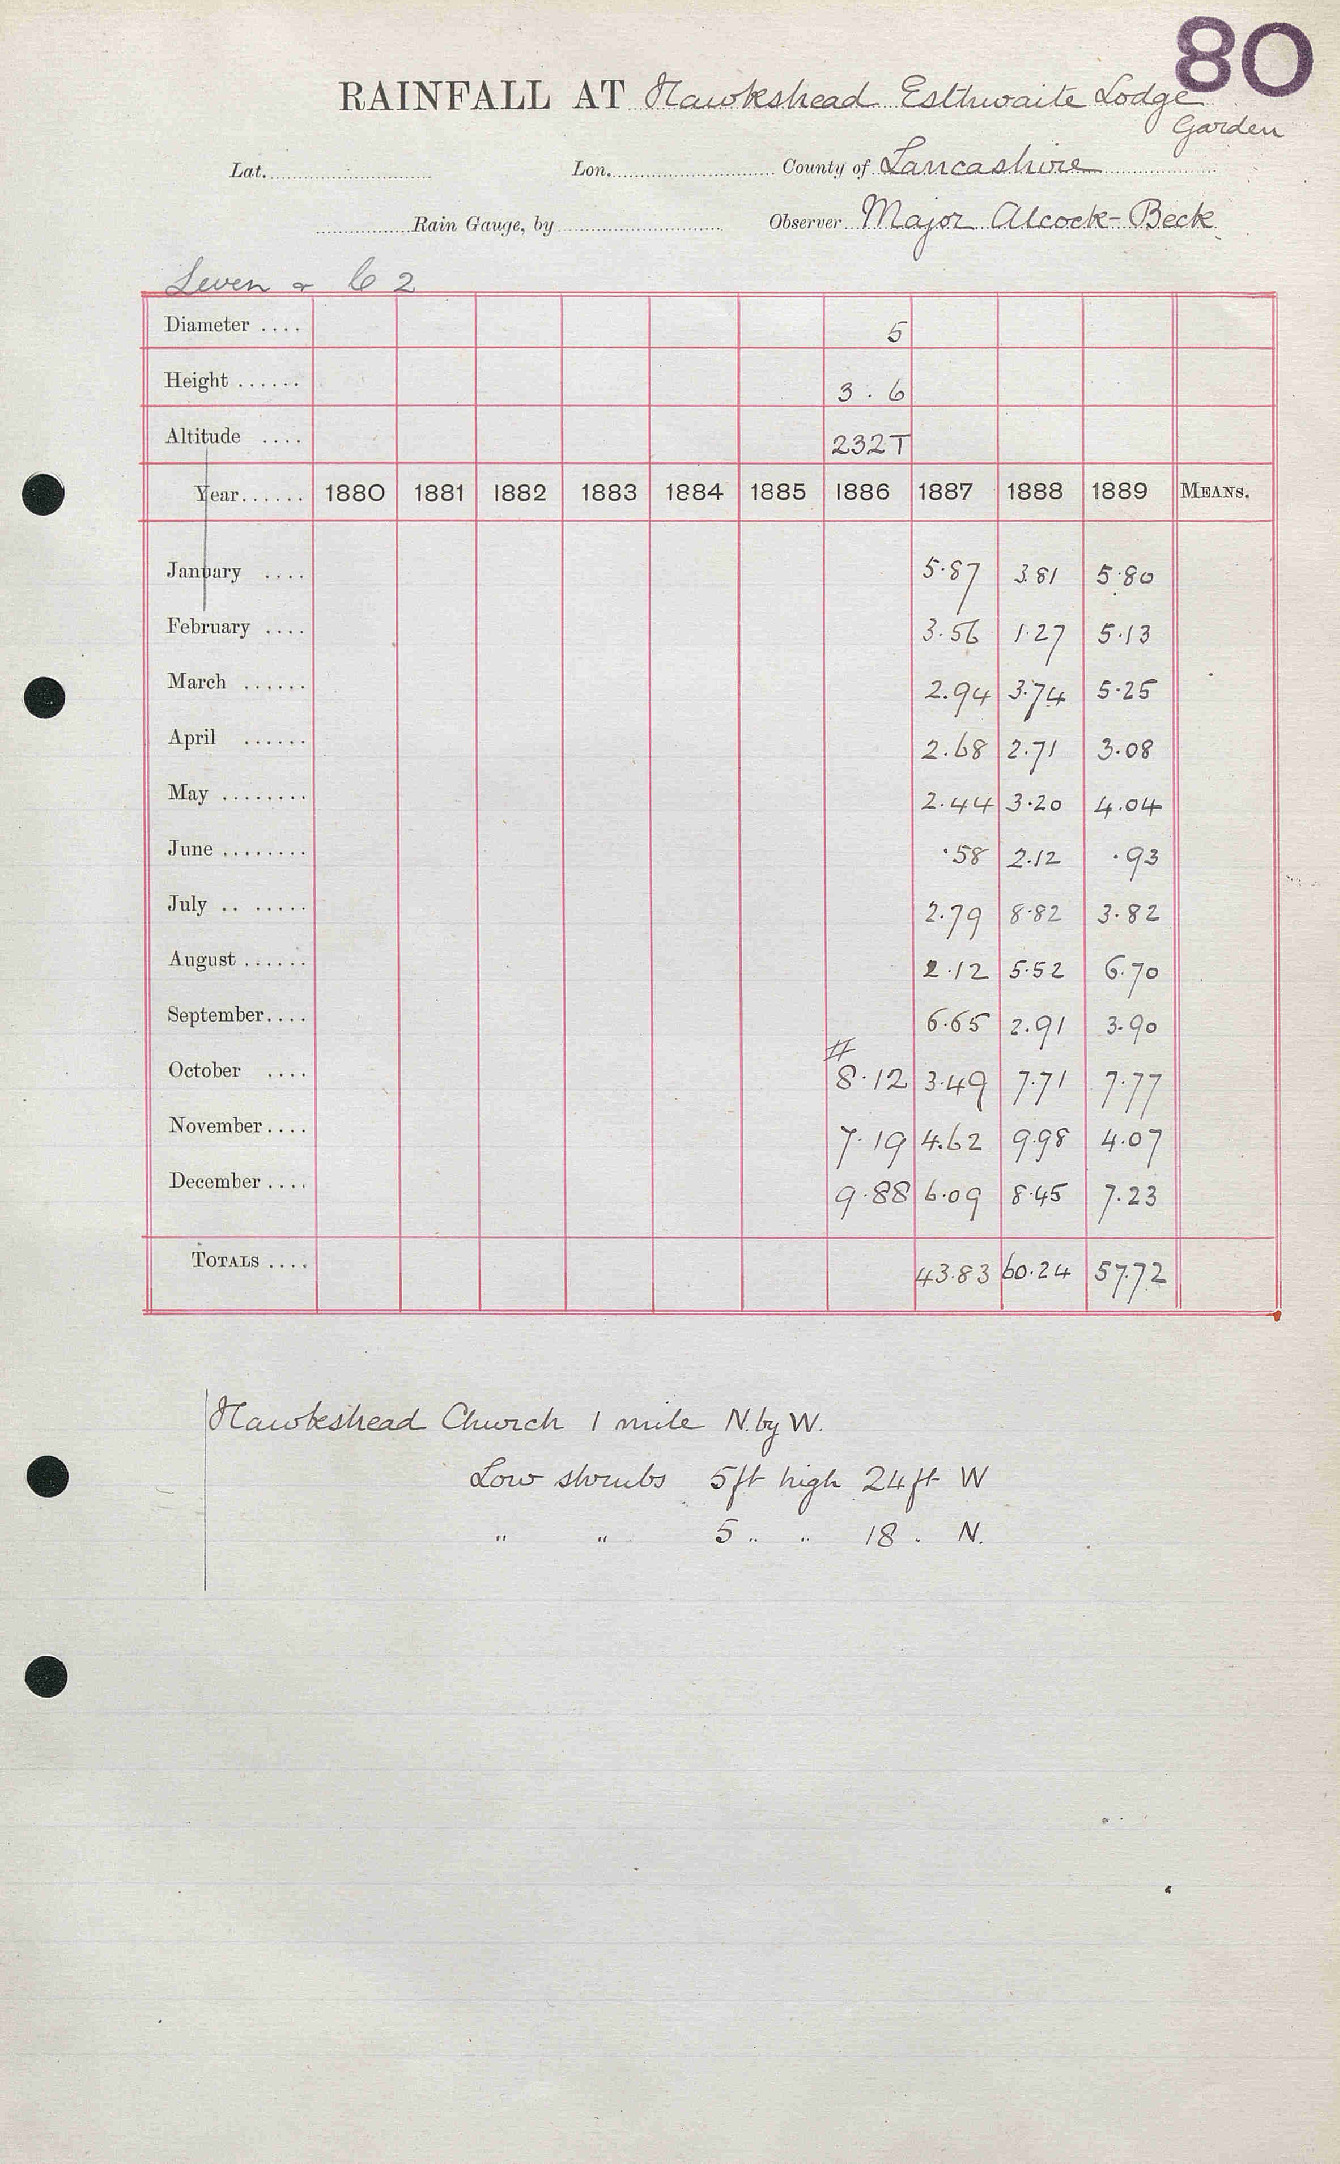 80
RAINFALL AT Hawkshead Esthwaite Lodge
Garden
Lat. Lon. County of Lancashire
Rain Gauge, by Observer Major Alcock-Beck
Leven
Diameter .... 5
Height ...... 3 . 6
Altitude .... 232T
Year...... 1880 1881 1882 1883 1884 1885 1886 1887 1888 1889 MEANS.
January .... 5.87 3.81 5.80
February .... 3.56 1.27 5.13
March ...... 2.94 3.74 5.25
April ...... 2.68 2.71 3.08
May ........ 2.44 3.20 4.04
June ........ .58 2.12 .93
July .. ..... 2.79 8.82 3.82
August ...... 2.12 5.52 6.70
September.... 6.65 2.91 3.90
#
October .... 8.12 3.49 7.71 7.77
November.... 7.19 4.62 9.98 4.07
December .... 9.88 6.09 8.45 7.23
TOTALS .... 43.83 60.24 57.72
Hawkshead Church 1 mile N. by W.
Low shrubs 5ft high 24ft W
" " 5 " " 18 . N.